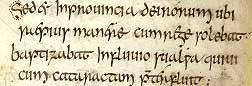 Sedet inprouincia deirorum ubi
saepius manere cumrege solebat
baptizabat influuio sualua quiui
cum cataractam p̄terfluit;